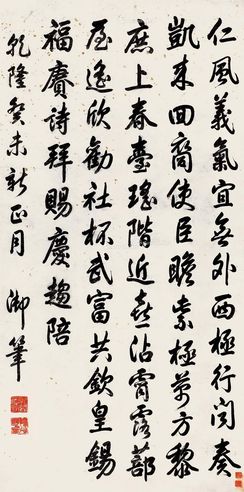 仁風義氣宜無外西極行聞奏
凱來回裔使臣瞻紫極萬方黎
庶上春臺瑤階近喜沾霄露蔀
屋遙欣勸社杯武富共欽皇錫
福賡詩拜賜慶趨陪
乾隆癸未新正月 御筆